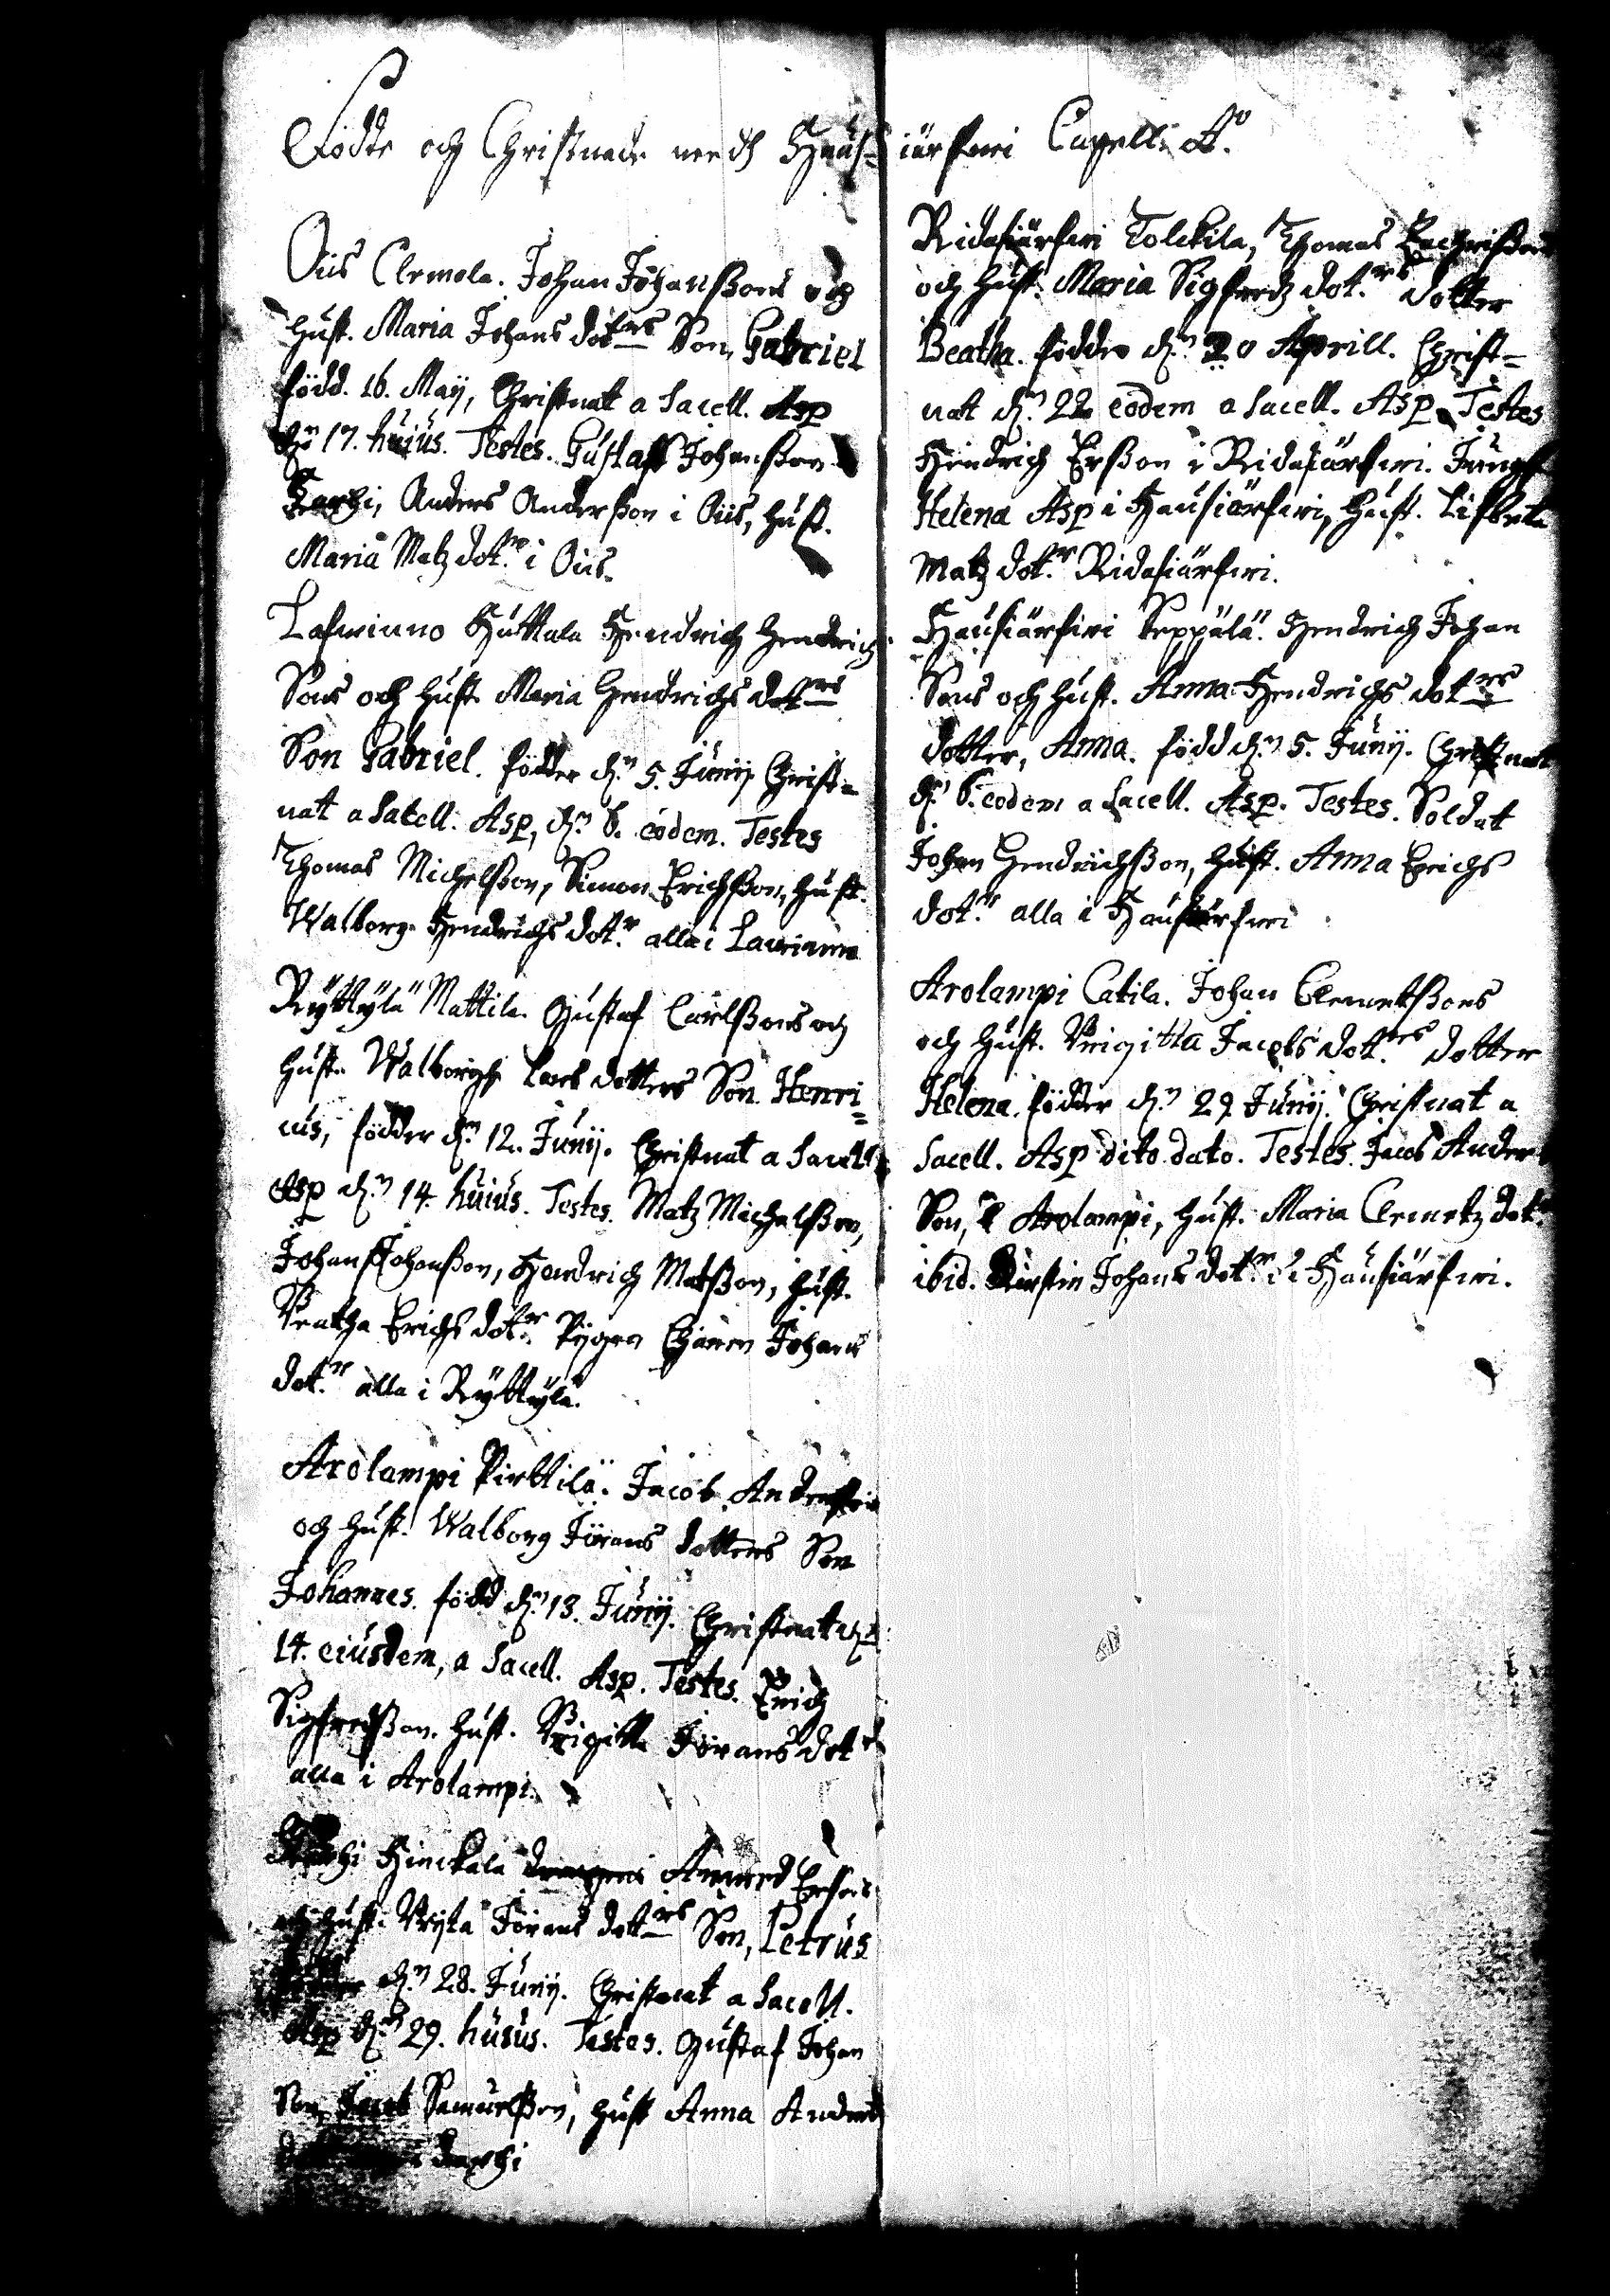 Födde och Christnade wedh Haus=iärfwi Capell. Ao.
Oiis Clemola. Johan Johanßons och
hust. Maria Johans dotrs Son, Gabriel
född. 16. Maij, Christnat a Sacell. Asp
dn 17. huius. Testes. Gustaff Johanßon
Karhi, Anders Anderßon i Oiis, hust.
Maria Matz dotr i Oiis.
Huttula Hendrich Hendrich
Sons och hust. Maria Hendrichs dotrs
Son Gabriel. födder dn 5. Junij Christ=
nat a Sacell. Asp, dn 6. eodem. Testes
Thomas Michelßon, Simon Erichßon, hust.
Walborg Hendrichs dotr alla i
Ryttylä Mattila. Gustaf Carlßons och
hust. Walborgh Lars dotters Son Henri=
cus, födder dn 12. Junij. Christnat a Sacell
Asp dn 14. huius. Testes. Matz Michelßon,
Johan Johanßon, Hendrich Matßon, hust.
Beatha Erichs dotr. Pigan Johans
dotr alla i Ryttylä.
Arolampi Pirttilä. Jacob
och hust. Walborg Jörans dotters Son
Johannes. född dn 13. Junij. Christnat dn
14. eiusdem, a Sacell. Asp. Testes. Erich
Sigfredßon. hust. Brigitta Jörans dotr
alla i Arolampi.
Hinckala
och hust. Jörans dotrs Son, Petrus
födder dn 28. Junij. Christnat a Sacell.
Asp dn 29. huius. Testes. Gustaf Johan
Son, Jacob Samuelßon, hust Anna Anders
Karhi
Ridasiärfwi Tolckila, Thomas Zachrißons
och hust. Maria Sigfredz dot.rs dotter
Beatha. födder dn 20 Aprill. Christ=
nat dn 22 eodem a Sacell. Asp. Testes
Hendrich Erßon i Ridasiärfwi. Jungf.
Helena Asp i Hausiärfwi, hust. Lisbeta
Matz dotr Ridasiärfwi.
Hausiärfwi Seppälä. Hendrich Johan
Sons och hust. Anna Hendrichs dotrs
dotter, Anna. född dn 5. Junij. Christnat
dn 6. eodem a Sacell. Asp. Testes. Soldat
Johan Hendrichßon, hust. Anna Erichs
dotr alla i Hausiärfwi
Arolampi Catila. Johan Clemetßons
och hust. Brigitta Jacobs dot.rs dotter
Helena. födder dn 29 Junij. Christnat a
Sacell. Asp dito dato. Testes. Jacob Anders
Son, i Arolampi, hust. Maria Clemetz dotr
ibid. Kirstin Johans dotr i Hausiärfwi.